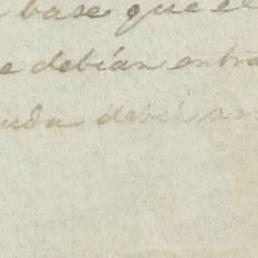 base que el
debían entra
uda debia